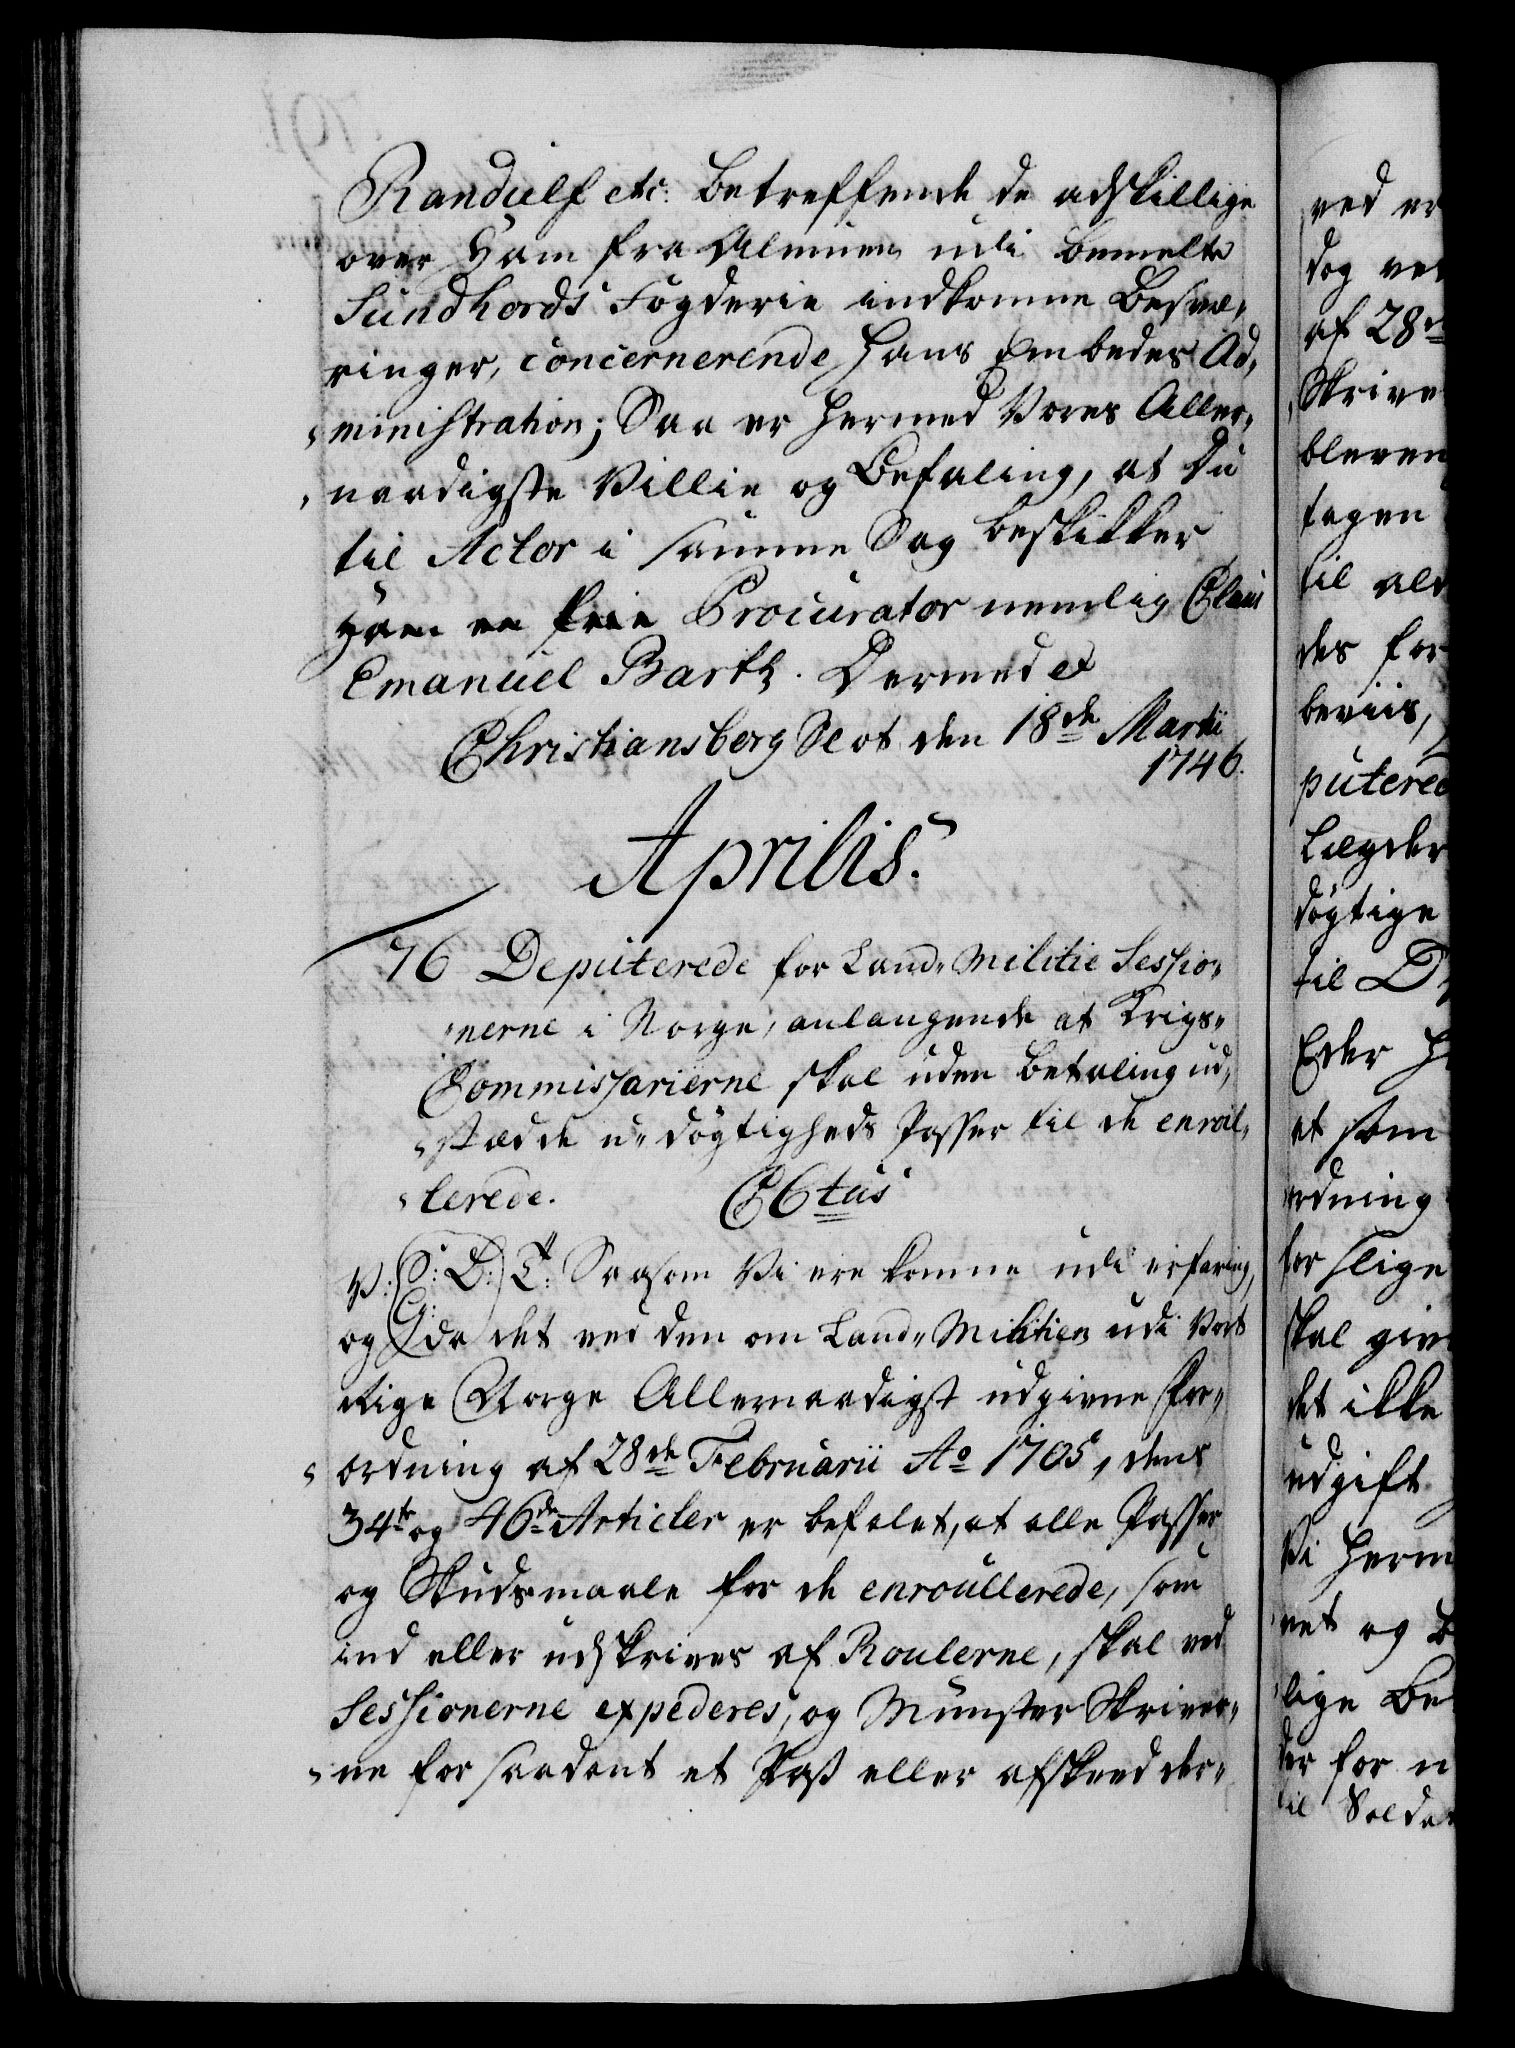 Randulf etc. betreffende de adskillige
over ham fra Almuen udi bemelte
Sundhords Fogderie indkomne Besvæ-
ringer, concernerende hans Embedes Ad-
ministration; Saa er hermed Vores Aller-
naadigste Villie og Befaling, at du
til Actor i samme Sag beskikker
ham en Procurator nemlig Claus
Emanuel Bartz. Dermed et
Christiansberg Slot den 18de Martii
1746.
Aprilis.
76 Deputerede for Land-Militie Sessio-
nerne i Norge, anlangende at Krigs-
Commissarierne skal uden betaling ud-
stæde u-dögtigheds Passer til de enroul-
lerede. C6tus
V: S: D: T: Saasom Vi ere komne udi erfaring,
G:
og da det ved den om Land-Militien udi Vort
Rige Norge Allernaadigst udgivne For-
ordning af 28de Februarii Ao 1705, dens
34te og 46de Articler er befalet, at alle Passer
og Skudsmaale for de enroullerede, som
ind eller udskrives af Roulerne, skal ved
Sessionerne expederes, og Mynster Skriver-
ne for saadant et Pas eller afskeed der-
ved er
dog ve
af 28de
Skrive
bleven
tagen
til
des for
beviis,
putered
Lægder
dögtige
til D
Eder h
at som
ordning
for slige
skal giv
det ikke
udgift
Vi herm
vet og b
lige Be
der for u
til Solda